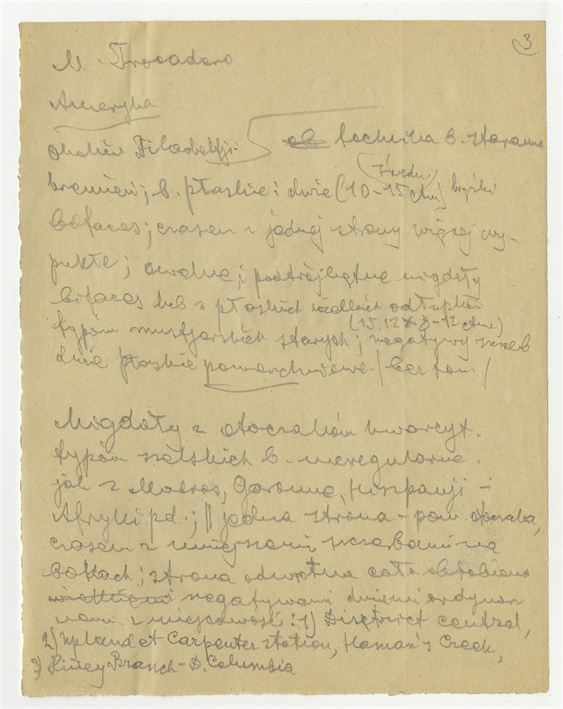 3
M. Trocadero
Ameryka
okolice Filadelfji: technika b. staranna
kremień; b. płaskie i duże (10-15 ctm) średn.
bifaces; czasem z jednej strony więcej wy-
pukłe; owalne i podtrójkątne migdały
bifaces lub z płaskich wielkich odłupków
(15, 12 x 8-12 ctm)
typów mustjerskich starych; negatywy szczerb
duże płaskie powierzchniowe / bez kon. /
Migdały z otoczaków kwarcyt.
typów szelskich b. nieregularne
jak z Madras, Garonne, Hiszpanji -
Afryki pd.; || jedna strona - pow. otoczaka,
czasem z mniejszemi szczerbami na
bokach; strona odwrotna cała obrobiona
negatywami dużemi ordynar-
nemi z miejscowość: 1) District central,
2) Upland et Carpenter station, Haman's Creek,
3) Piney Branch - D. Columbia